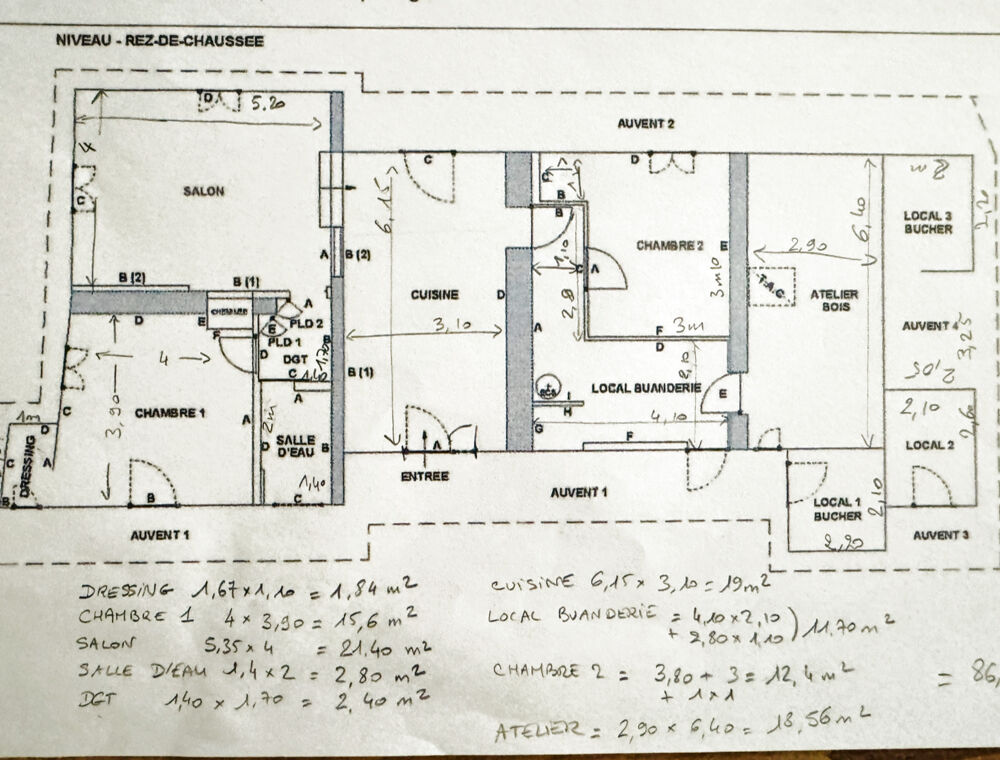 NIVEAU - REZ-DE-CHAUSSEE
AUVENT 2
D
5.20
4
C
SALON
C
6,15
C
B
B
D
CHAMBRE 2
E
3m10
2,90
6,40
LOCAL 3
BUCHER
2m
2,20
A
B (2)
CUISINE
D
3,10
1,10
C
A
2,8
F
3m
D
T.A.G.
ATELIER
BOIS
AUVENT 4
3,25
2,05
B (2)
B (1)
D
E
CHEMINEE
F
A
E
PLD 2
PLD 1
D
DGT
B
1,70
C
1,40
B (1)
A
LOCAL BUANDERIE
2,10
E
4
3,90
CHAMBRE 1
C
A
A
2m
D
SALLE
D'EAU
B
1,40
C
ECS
I
H
G
4,10
F
2,10
2,60
LOCAL 2
1m
D
C
DRESSING
A
B
B
A
ENTREE
AUVENT 1
AUVENT 1
LOCAL 1
BUCHER
2,10
2,20
AUVENT 3
DRESSING 1,67 x 1,10 = 1,84 m²
CHAMBRE 1 4 x 3,90 = 15,6 m²
SALON 5,35 x 4 = 21.40 m²
SALLE D'EAU 1,4 x 2 = 2,80 m²
DGT 1,40 x 1,70 = 2,40 m²
CUISINE 6,15 x 3,10 = 19 m²
LOCAL BUANDERIE = 4,10 x 2,10
+ 2,80 x 1,10 ) 11.70 m²
CHAMBRE 2 = 3,80 + 3 = 12,4 m²
+ 1 x 1
= 86,
ATELIER = 2,90 x 6,40 = 18,56 m²